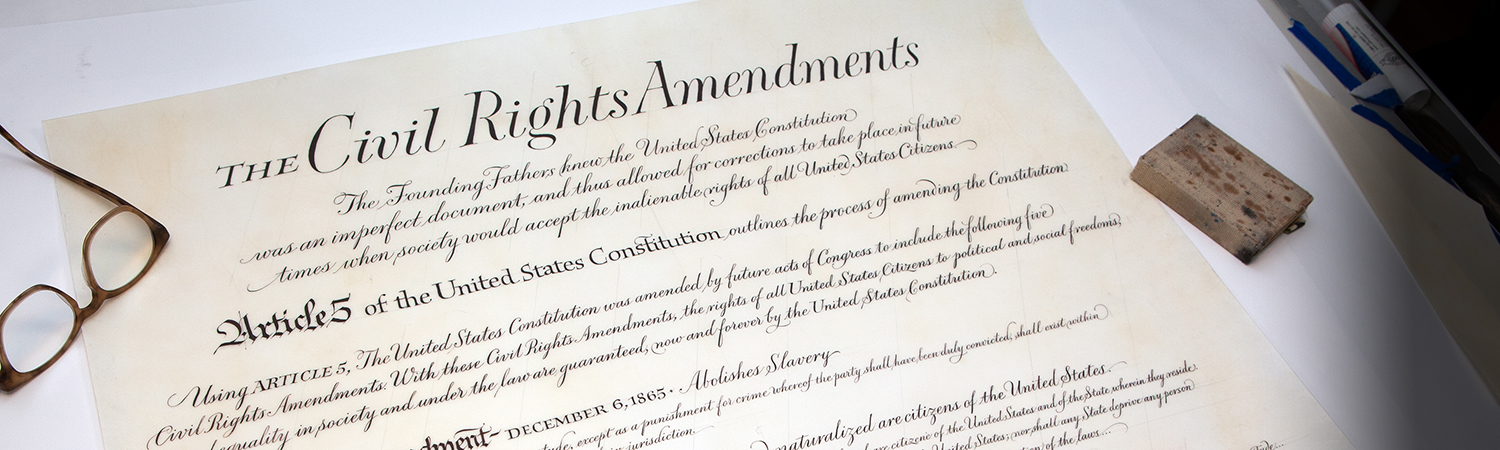 THE Civil Rights Amendments
The Founding Fathers knew the United States Constitution
was an imperfect document, and thus allowed for corrections to take place in future
times when society would accept the inalienable rights of all United States Citizens.
Article 5 of the United States Constitution outlines the process of amending the Constitution
Using ARTICLE 5, The United States Constitution was amended by future acts of Congress to include the following five
Civil Rights Amendments. With these Civil Rights Amendments, the rights of all United States Citizens to political and social freedoms,
equality in society and under the law are guaranteed, now and forever by the United States Constitution.
DECEMBER 6, 1865 · Abolishes Slavery
except as a punishment for crime whereof the party shall have been duly convicted, shall exist within
jurisdiction.
naturalized are citizens of the United States.
are citizens of the United States and of the State wherein they reside.
United States; nor shall any State deprive any person
of the laws...